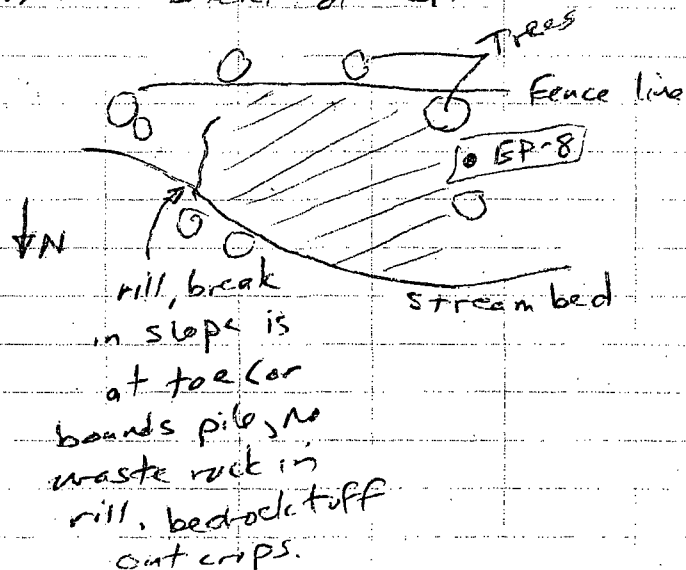 Trees
Fence line
EP-8
N
rill, break
in slope is
at toe (or
bounds pile, no
waste rock in
rill. bedrock tuff
outcrops.
stream bed